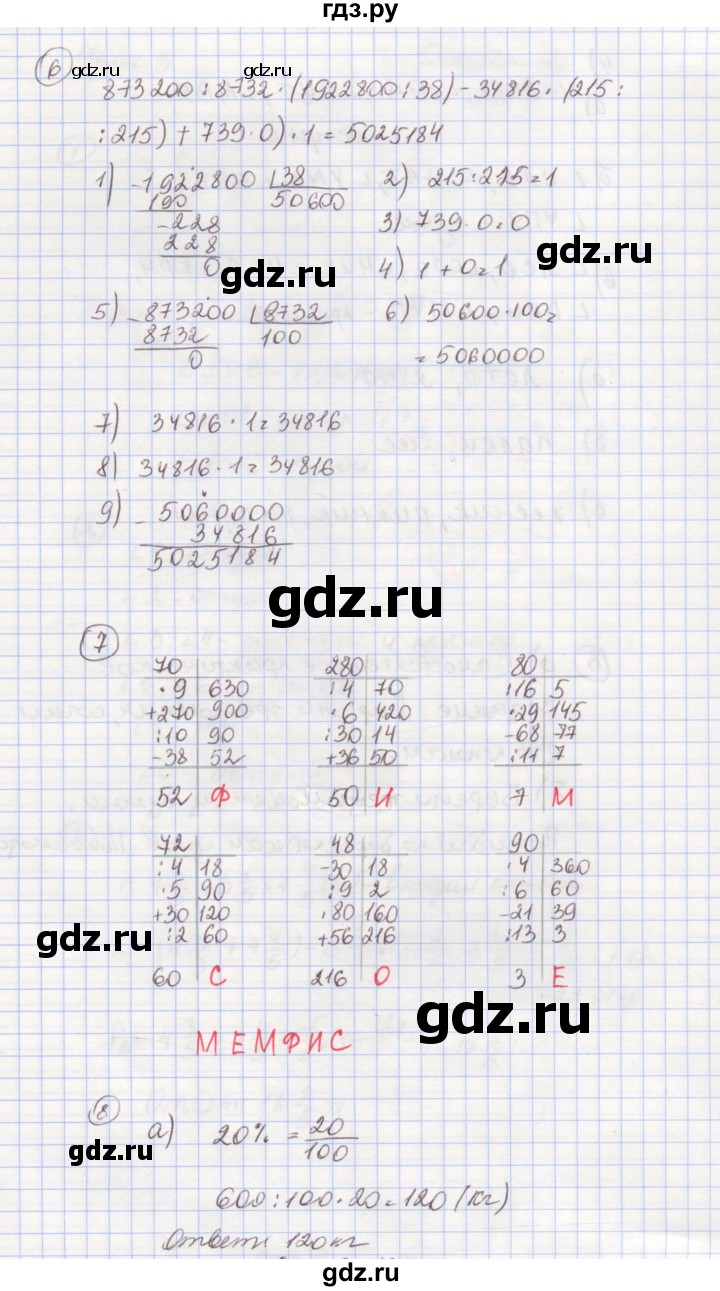 гдз.ру
6 gdz.ru gdz.ru
873200:8732·(1922800:38)-34816·(215:
:215)+739·0)·1=5025184
1) -1922800 38 2) 215:215=1
190 50600
-228 3) 739·0=0
228
0 4) 1+0=1
gdz.ru gdz.ru
5) -873200 8732 6) 50600·100=
8732 100
0 =5060000
7) 34816·1=34816
8) 34816·1=34816
9) -5060000
34816
5025184
gdz.ru
7
70 280 80
·9 630 :4 70 :16 5
+270 900 ·6 420 ·29 145
:10 90 :30 14 -68 77
-38 52 +36 50 :11 7
52 Ф 50 И 7 М
72 48 90
:4 18 -30 18 ·4 360
·5 90 :9 2 :6 60
+30 120 ·80 160 -21 39
:2 60 +56 216 :13 3
gdz.ru
60 С 216 О 3 Е
gdz.ru
МЕМФИС
8
а) 20% = 20
100
gdz.ru
600:100·20=120 (кг)
Ответ: 120кг
gdz.ru